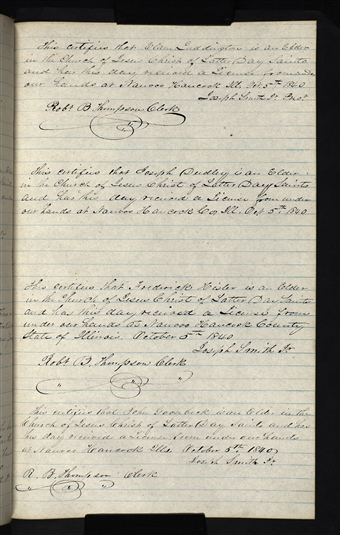 This certifies that Elam Luddington is an Elder
in the Church of Jesus Christ of Latter Day Saints
and has this day received a License from under
our hands at Nauvoo Hancock Ill. Oct. 5th 1840
Joseph Smith Jr.
Robt. B. Thompson Clerk
This certifies that Joseph Dudley is an Elder
in the Church of Jesus Christ of Latter Day Saints
and has this day received a License from under
our hands at Nauvoo Hancock Co Ill. Oct 5th 1840
This certifies that Frederick Kisler is an Elder
in the Church of Jesus Christ of Latter Day Saints
and has this day received a License from
under our hands at Nauvoo Hancock County
State of Illinois October 5th 1840
Joseph Smith Jr
Robt. B. Thompson Clerk
This certifies that John is an Elder in the
Church of Jesus Christ of Latter Day Saints and has
this day received a License from under our hands
at Nauvoo Hancock Ills. October 5th 1840
Joseph Smith Jr
R. B. Thompson Clerk